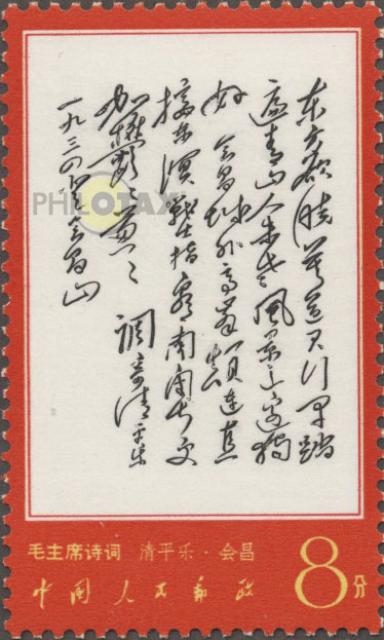 东方欲晓莫道君行早踏
遍青山人未老風景这边独
好 会昌城外高峯顛連直
接东溟戰士指看南粤更
加欝欝葱葱 調寄清平乐
一九三四年会昌山
PHILOTAX
毛主席诗词 清平乐·会昌
中国人民邮政
8分